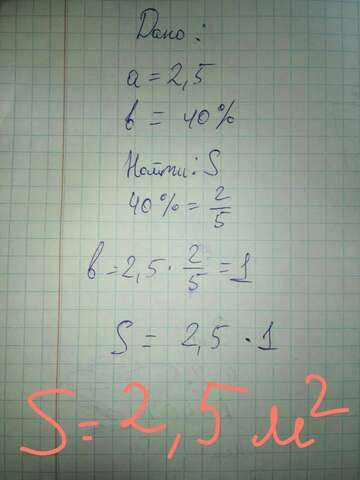 Дано:
a = 2,5
b = 40%
Найти: S
40% = 2/5
b = 2,5 · 2/5 = 1
S = 2,5 · 1
S = 2,5 м²